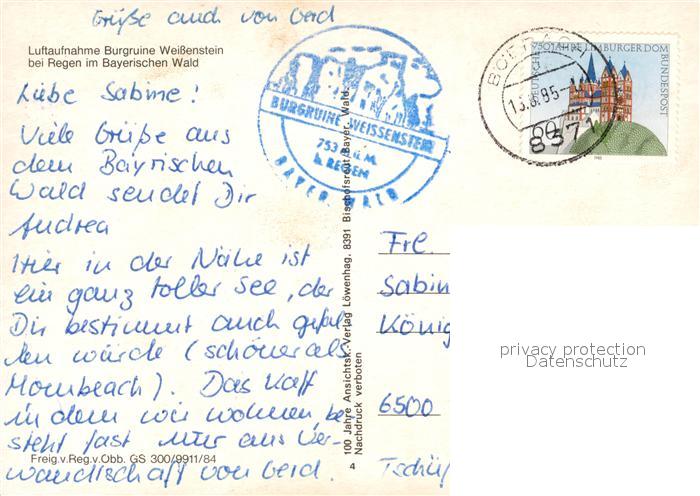 Grüße auch von Gerd
Luftaufnahme Burgruine Weißenstein
bei Regen im Bayerischen Wald
Liebe Sabine!
Viele Grüße aus
dem Bayrischen
Wald sendet Dir
Andrea
Hier in der Nähe ist
ein ganz toller See, der
Dir bestimmt auch gefal-
len würde (schöner als
Mombeach). Das Kaff
in dem wir wohnen, be-
steht fast nur aus Ver-
wandtschaft von Gerd.
Freig.v.Reg.v.Obb. GS 300/9911/84
BURGRUINE WEISSENSTEIN
753 m ü. M.
b. REGEN
BAYER. WALD
100 Jahre Ansichtsk.-Verlag Löwenhag, 8391 Bischofsreut/Bayer. Wald
Nachdruck verboten
4
750 JAHRE LIMBURGER DOM
DEUTSCHE BUNDESPOST
60
1985
13.8.85
8371
Frl.
Sabin
König
6500
Tschüß
privacy protection
Datenschutz